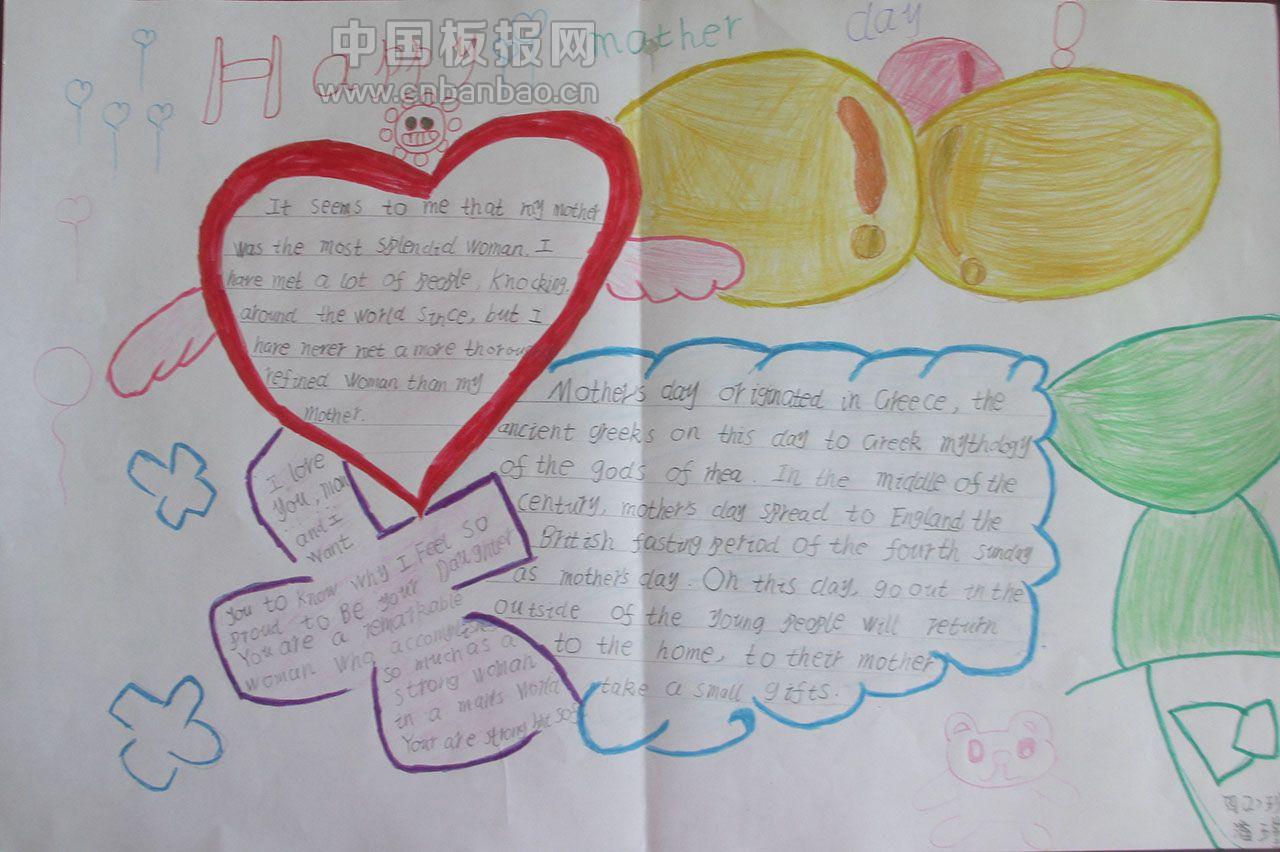 Happy mather day!
中国板报网
www.cnbanbao.cn
It seems to me that my mother
was the most splendid woman. I
have met a lot of people, knocking
around the world since, but I
have never net a more thorou
refined woman than my
mother.
Mother's day originated in Greece, the
ancient greeks on this day to Greek mythology
of the gods of rhea. In the middle of the
century, mother's day spread to England the
British fasting period of the fourth sunday
as mother's day. On this day, go out in the
outside of the young people will return
to the home, to their mother
take a small gifts.
I love
you, Mom
and I
want
You to know why I Feel so
proud to Be your Daughter
You are a remarkable
woman who accomplishes
so much as a
strong woman
in a man's world
Your are strong but sof
四(2)班